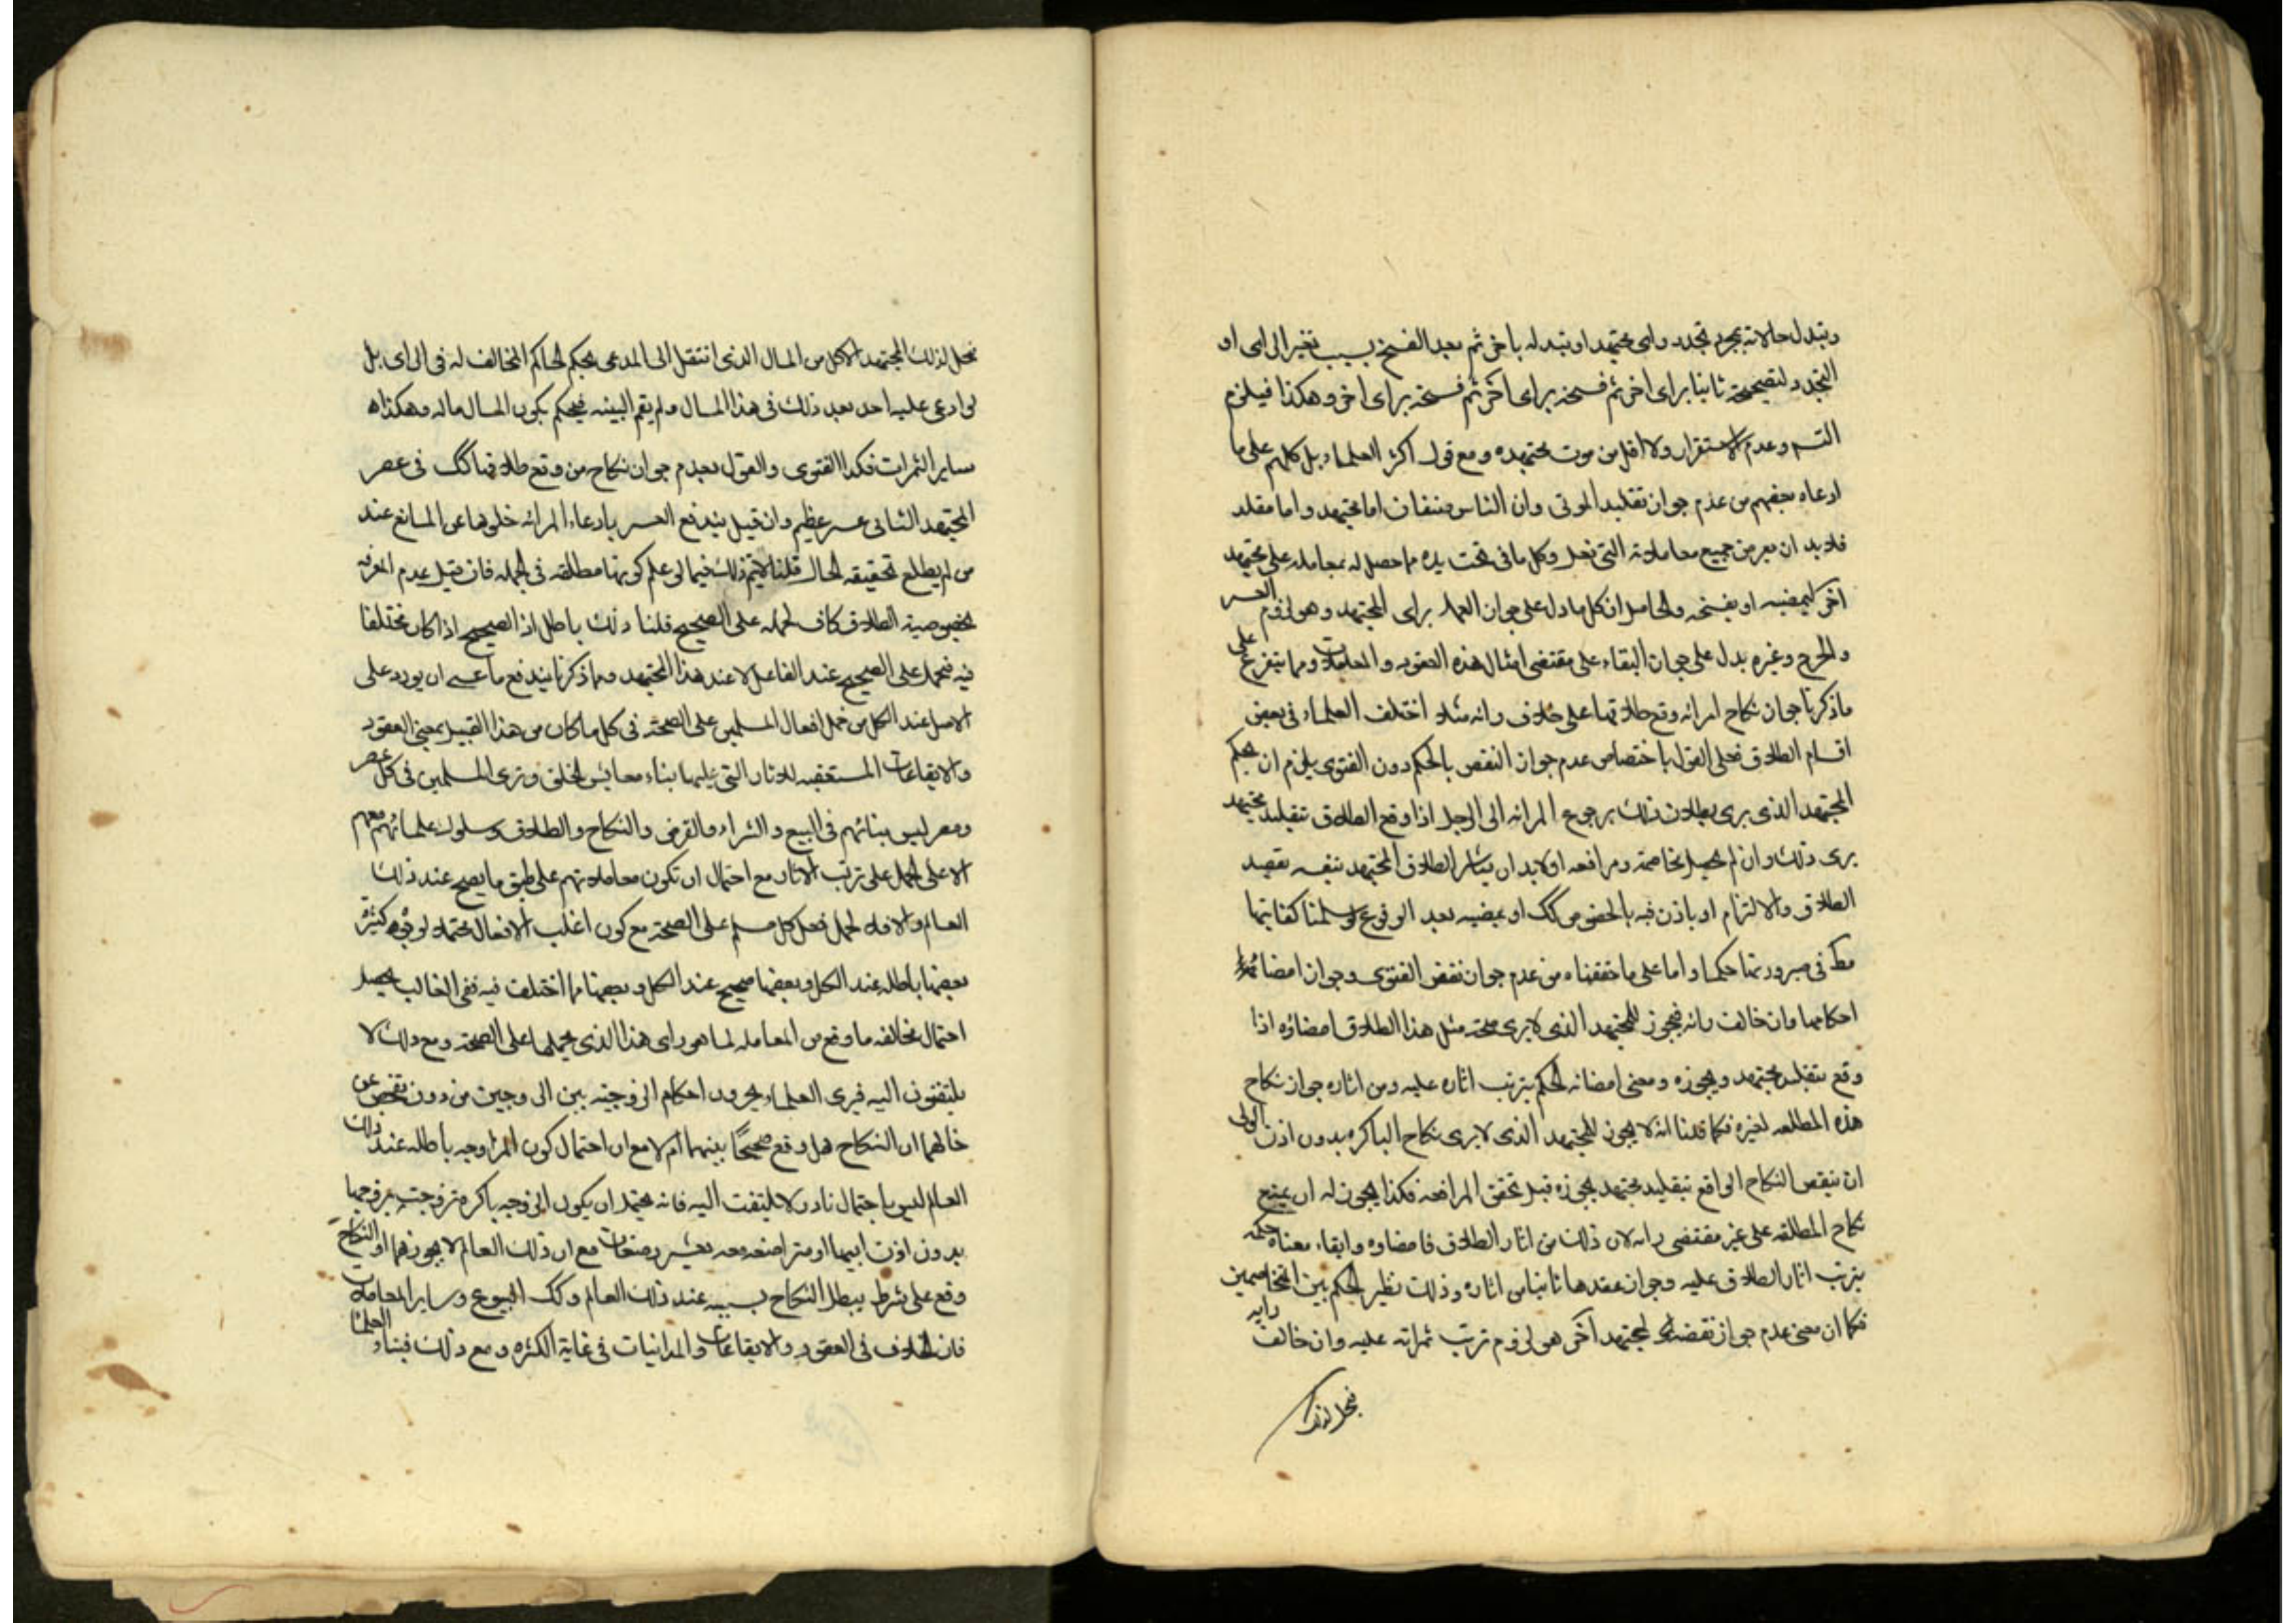 وتبدل حالاته بمجرد تجدد رای مجتهد او تبدله باخر ثم بعد الفسخ بسبب تغیر الرای او
التجدد لتصحیحه ثانیا برای اخر ثم فسخه برای اخر ثم فسخه برای اخر وهكذا فیلزم
وعدم الاستقرار ولا اقل من موت مجتهده ومع قول اكثر العلماء بل كلهم علی ما
ادعاه بعضهم من عدم جواز تقلید الموتی وان الناس صنفان اما مجتهد واما مقلد
فلابد ان یعرض جمیع معاملاته التی فعل وكل ما فی تحت یده مما حصل له بمعامله علی مجتهد
اخر لیمضیه او یفسخه والحاصل ان كل ما دل علی جواز العمل برای المجتهد وهو لزوم العسر
والحرج وغیره یدل علی جواز البقاء علی مقتضی امثال هذه العقود والمعاملات ومما یتفرع علی
ما ذكرنا جواز نكاح امراته وقع طلاقها علی خلاف رایه مثلا اختلف العلماء فی بعض
اقسام الطلاق فعلی القول باختصاص عدم جواز النقض بالحكم دون الفتوی یلزم ان یحكم
المجتهد الذی یری بطلان ذلك برجوع المراته الی الرجل اذا وقع الطلاق بتقلید مجتهد
یری ذلك وان لم یحصل مخاصمة ومرافعه اولابد ان یباشر الطلاق المجتهد بنفسه بقصد
الطلاق والالتزام او یاذن فیه بالخصوص كك او یمضیه بعد الوقوع لو سلمنا كفایتها
مط فی صیرورتها حكما واما علی ما حققناه من عدم جواز نقض الفتوی وجواز امضاء
احكامها وان خالف رایه فیجوز للمجتهد الذی لا یری صحته مثل هذا الطلاق امضاؤه اذا
وقع بتقلید مجتهد ویجوزه ومعنی امضائه الحكم بترتب اثاره علیه ومن اثاره جواز نكاح
هذه المطلقه لغیره فكما قلنا انه لا یجوز للمجتهد الذی لا یری نكاح الباكره بدون اذن الولی
ان ینقض النكاح الواقع بتقلید مجتهد یجوزه قبل تحقق المرافعه فكذا یجوز له ان یبیح
نكاح المطلقه علی غیر مقتضی رایه لان ذلك من اثار الطلاق فامضاوه وابقاء معناه حكمه
بترتب اثار الطلاق علیه وجواز عقدها ثانیا من اثاره وذلك نظیر الحكم بین المتخاصمین
فكما ان معنی عدم جواز نقضه لمجتهد اخر هو لزوم ترتب ثمراته علیه وان خالف رایه
فیحل لذلك
فیحل لذلك المجتهد الاكل من المال الذی انتقل الی المدعی بحكم الحاكم المخالف له فی الرای بل
لو ادعی علیه احد بعد ذلك فی هذا المال ولم یقم البینه فیحكم بكون المال ماله وهكذا
سایر الثمرات فكذا الفتوی والقول بعدم جواز نكاح من وقع طلاقها كك فی عصر
المجتهد الثانی عسر عظیم وان قیل یندفع العسر بادعاء المرائه خلوها عن المانع عند
من لم یطلع بحقیقه الحال قلنا لایتم ذلك فیما لو علم كونها مطلقه فی الجمله فان قیل عدم المعرفه
بخصوصیة الطلاق كاف لحمله علی الصحیح قلنا ذلك باطل اذ الصحیح اذا كان مختلفا
فیه فیحمل علی الصحیح عند الفاعل لا عند هذا المجتهد ومما ذكرنا یندفع ما عسی ان یورد علی
الاصل عند الكل من حمل افعال المسلمین علی الصحة فی كل ما كان من هذا القبیل بمعنی العقود
والایقاعات المستعقبه للاثار التی علیها بناء معایش الخلق ونری المسلمین فی كل عصر
ومصر لیس بنائهم فی البیع والشراء والقرض والنكاح والطلاق وسلوك علمائهم معهم
الا علی الحمل علی ترتب الاثار مع احتمال ان تكون معاملاتهم علی طبق ما یصح عند ذلك
العالم والا فلا لحمل فعل كل مسلم علی الصحة مع كون اغلب الافعال محتمله لوجوه كثیرة
بعضها باطله عند الكل وبعضها صحیح عند الكل وبعضها مما اختلف فیه ففی الغالب یحصل
احتمال مخالفه ما وقع من المعامله لما هو رای هذا الذی یحملها علی الصحة ومع ذلك لا
یلتفتون الیه فیری العلماء یجرون احكام الزوجیه بین الزوجین من دون تفحص عن
حالهما ان النكاح هل وقع صحیحًا بینهما ام لا مع ان احتمال كون المزاوجه باطله عند ذلك
العالم لیس باحتمال نادر لا یلتفت الیه فانه یحتمل ان یكون الزوجه باكره تزوجت بزوجها
بدون اذن ابیها او مرتضعه معه بعشر رضعات مع ان ذلك العالم لا یجوزهما او النكاح
وقع علی شرط یبطل النكاح بسببه عند ذلك العالم وكك البیوع وسایر المعاملات
فان الخلاف فی العقود والایقاعات والمداینات فی غایة الكثره ومع ذلك فبناء العلماء